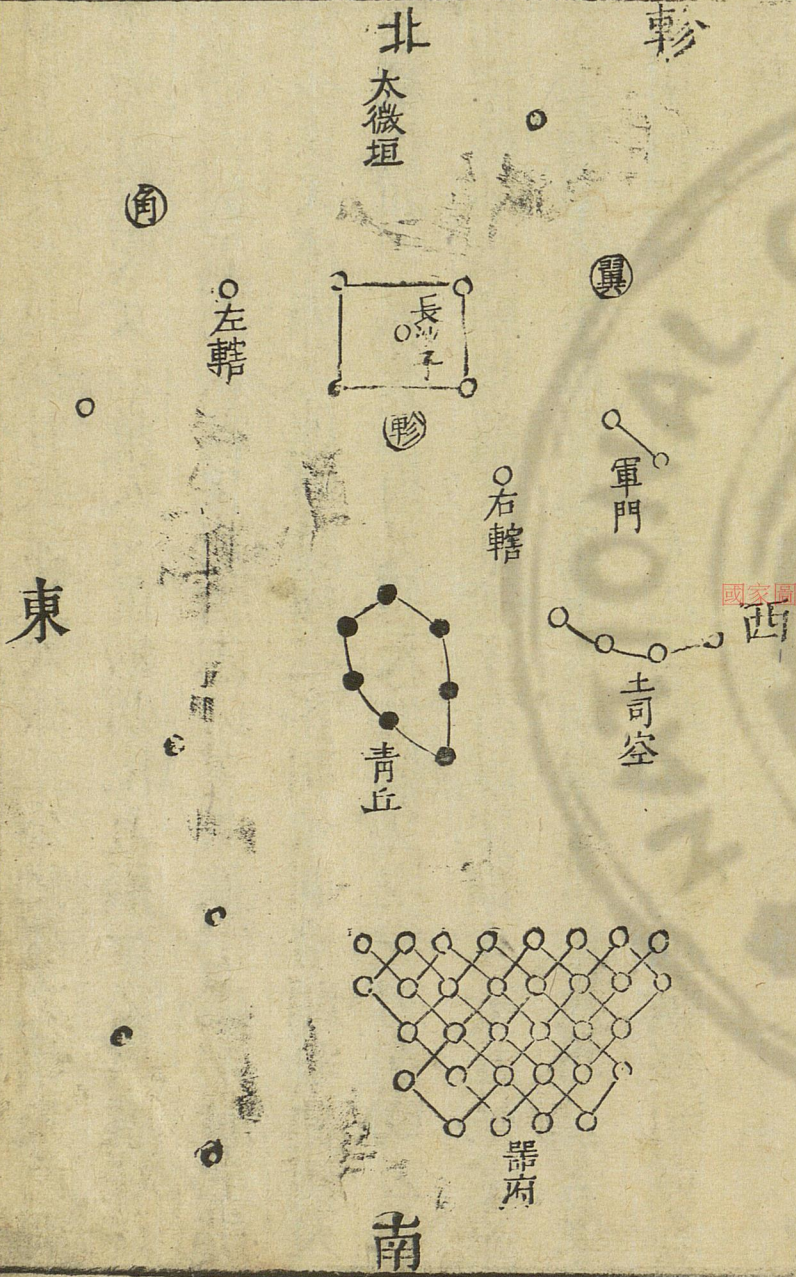 軫
北
太微垣
角
翼
左轄
長沙子
軫
軍門
右轄
東
西
國家圖
土司空
青丘
器府
南